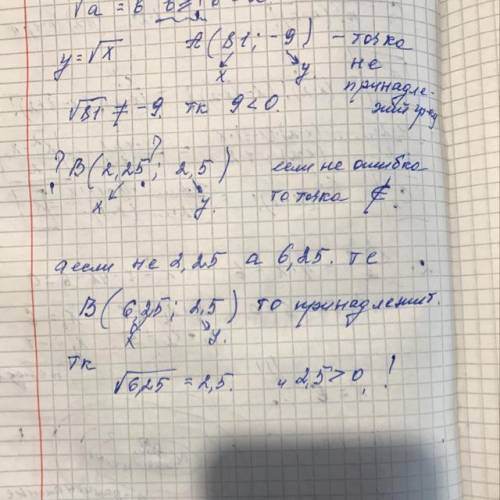 √a = b
y = √x А(81; -9) - точка
x y не
принадле-
√81 ≠ -9. тк 9 < 0. жит гр-ку
? В(2,25?; 2,5) если не ошибка
x y. то точка ∉.
а если не 2,25 а 6,25. те
В(6,25; 2,5) то принадлежит.
x y.
тк √6,25 = 2,5. и 2,5 > 0. !